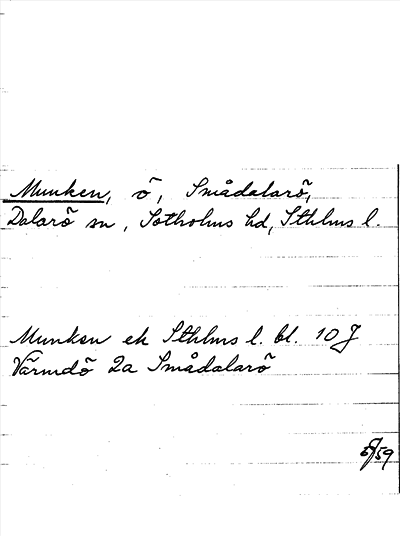 Munken, ö, Smådalarö,
Dalarö sn, Sotholms hd, Sthlms l.
Munken ek Sthlms l. bl. 10 J
Värmdö 2a Smådalarö
59